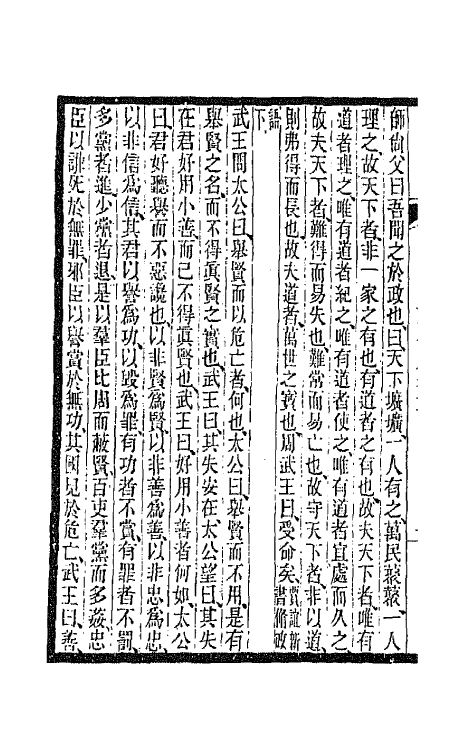 師尙父曰吾聞之於政也曰天下壙壙一人有之萬民藂藂一人
理之故天下者非一家之有也有道者之有也故夫天下者唯有
道者理之唯有道者紀之唯有道者使之唯有道者宜處而久之
故夫天下者難得而易失也難常而易亡也故守天下者非以道
則弗得而長也故夫道者萬世之寶也周武王曰受命矣賈誼新書脩政
語下
武王問太公曰舉賢而以危亡者何也太公曰舉賢而不用是有
舉賢之名而不得眞賢之實也武王曰其失安在太公望曰其失
在君好用小善而已不得眞賢也武王曰好用小善者何如太公
曰君好聽譽而不惡讒也以非賢爲賢以非善爲善以非忠爲忠
以非信爲信其君以譽爲功以毀爲罪有功者不賞有罪者不罰
多黨者進少黨者退是以羣臣比周而蔽賢百吏羣黨而多姦忠
臣以誹死於無罪邪臣以譽賞於無功其國見於危亡武王曰善